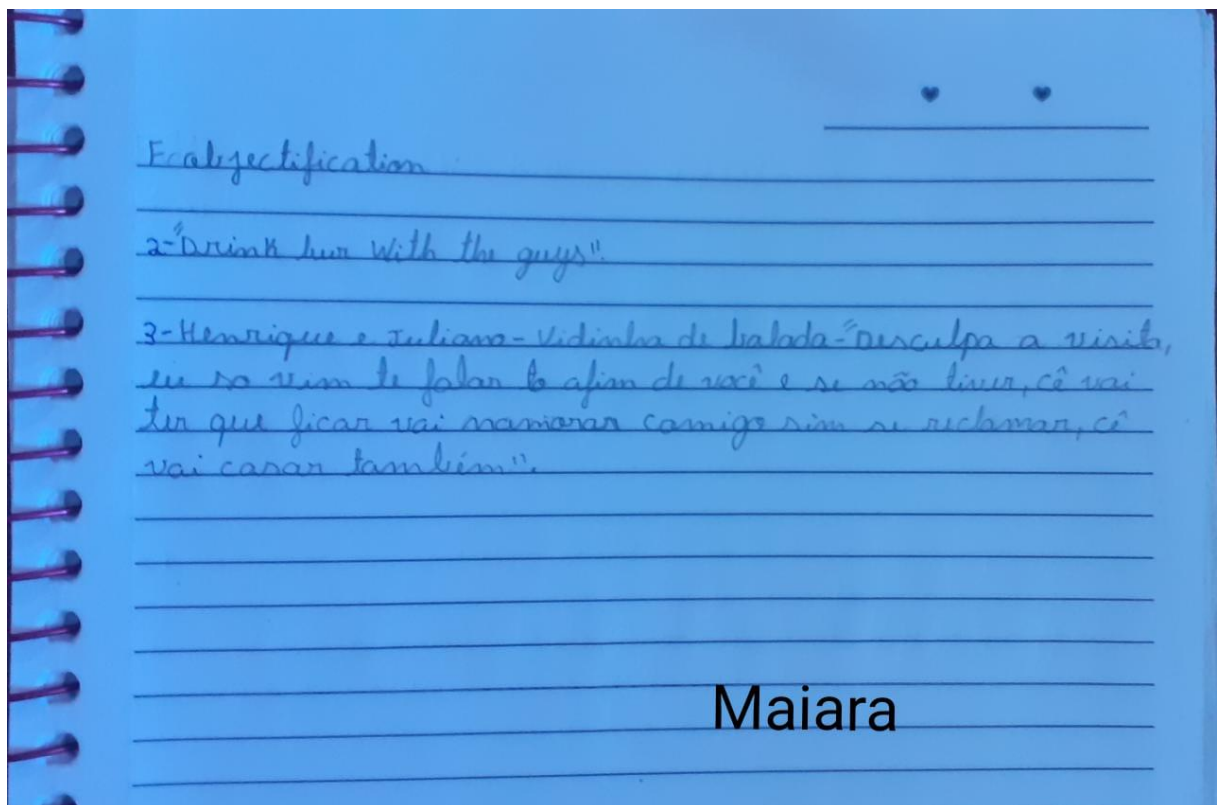 F- objectification
2-"Drink beer With the guys".
3-Henrique e Juliano-Vidinha de balada-"Desculpa a visita,
eu so vim te falar to afim de você e se não tiver, cê vai
ter que ficar vai namorar comigo sim se reclamar, cê
vai casar também".
Maiara